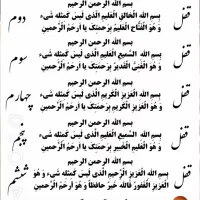 بسم الله الرحمن الرحیم
قفل دوم
بِسمِ اللهِ الْخالِقِ الْعَلیمِ الَّذی لَیسَ کَمِثلِه شَیء
وَ هُوَ الْفَتّاحُ الْعَلیمُ بِرَحمَتِکَ یا اَرحَمَ الرّٰحِمینَ
بسم الله الرحمن الرحیم
قفل سوم
بِسمِ اللهِ السَّمیعِ الْعَلیمِ الَّذی لَیسَ کَمِثلِه شَیء
وَ هُوَ الْغَنِیُّ الْقَدیرُ بِرَحمَتِکَ یا اَرحَمَ الرّٰحِمینَ
بسم الله الرحمن الرحیم
قفل چهارم
بِسمِ اللهِ السَّمیعِ الْعَلیمِ الَّذی لَیسَ کَمِثلِه شَیء
وَ هُوَ الْعَزیزُ الْکَریمُ بِرَحمَتِکَ یا اَرحَمَ الرّٰحِمینَ
بسم الله الرحمن الرحیم
قفل پنجم
بِسمِ اللهِ السَّمیعِ الْعَلیمِ الَّذی لَیسَ کَمِثلِه شَیء
وَ هُوَ الْعَلیمُ الْخَبیرُ بِرَحمَتِکَ یا اَرحَمَ الرّٰحِمینَ
بسم الله الرحمن الرحیم
قفل ششم
بِسمِ اللهِ الْعَزیزِ الرَّحیمِ الَّذی لَیسَ کَمِثلِه شَیء وَ هُوَ
الْعَزیزُ الْغَفورُ فَاللهُ خَیرٌ حافِظًا وَ هُوَ اَرحَمُ الرّٰحِمینَ